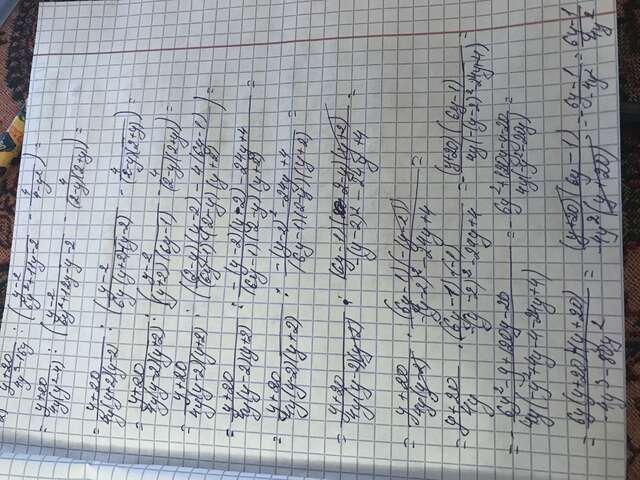 2) (y+20)/(4y³-16y) : ((y-2)/(6y²+11y-2) - 4/(4-y²)) =
= (y+20)/(4y(y²-4)) : ((y-2)/(6y²+12y-y-2) - 4/((2-y)(2+y))) =
= (y+20)/(4y(y+2)(y-2)) : ((y-2)/(6y(y+2)-(y+2)) - 4/((2-y)(2+y))) =
= (y+20)/(4y(y-2)(y+2)) : ((y-2)/((y+2)(6y-1)) - 4/((2-y)(2+y))) =
= (y+20)/(4y(y-2)(y+2)) : (((2-y)(y-2)-4(6y-1))/((6y-1)(2-y)(y+2))) =
= (y+20)/(4y(y-2)(y+2)) : (-(y-2)(y-2)-24y+4)/((6y-1)(2-y)(y+2)) =
= (y+20)/(4y(y-2)(y+2)) : (-(y-2)²-24y+4)/((6y-1)(2-y)(y+2)) =
= (y+20)/(4y(y-2)(y+2)) · ((6y-1)(2-y)(y+2))/(-(y-2)²-24y+4) =
= (y+20)/(4y(y-2)) · ((6y-1)(-(y-2)))/(-(y-2)²-24y+4) =
= (y+20)/(4y) · ((6y-1)·(-1))/(-(y-2)²-24y+4) = - ((y+20)(6y-1))/(4y(-(y-2)²-24y+4)) =
= - (6y²-y+120y-20)/(4y(-y²+4y-4-24y+4)) = - (6y²+120y-y-20)/(4y(-y²-20y)) =
= (6y(y+20)-(y+20))/(-4y³-80y²) = ((y+20)(6y-1))/(4y²(y+20)) = (6y-1)/(4y²) = (6y-1)/(4y²)